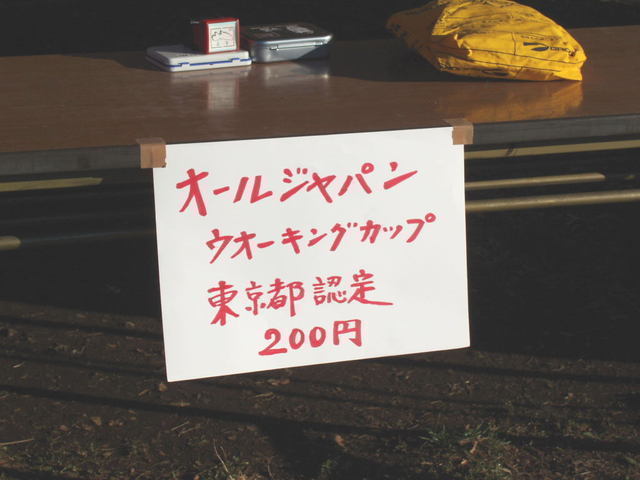 オールジャパン
ウオーキングカップ
東京都認定
200円